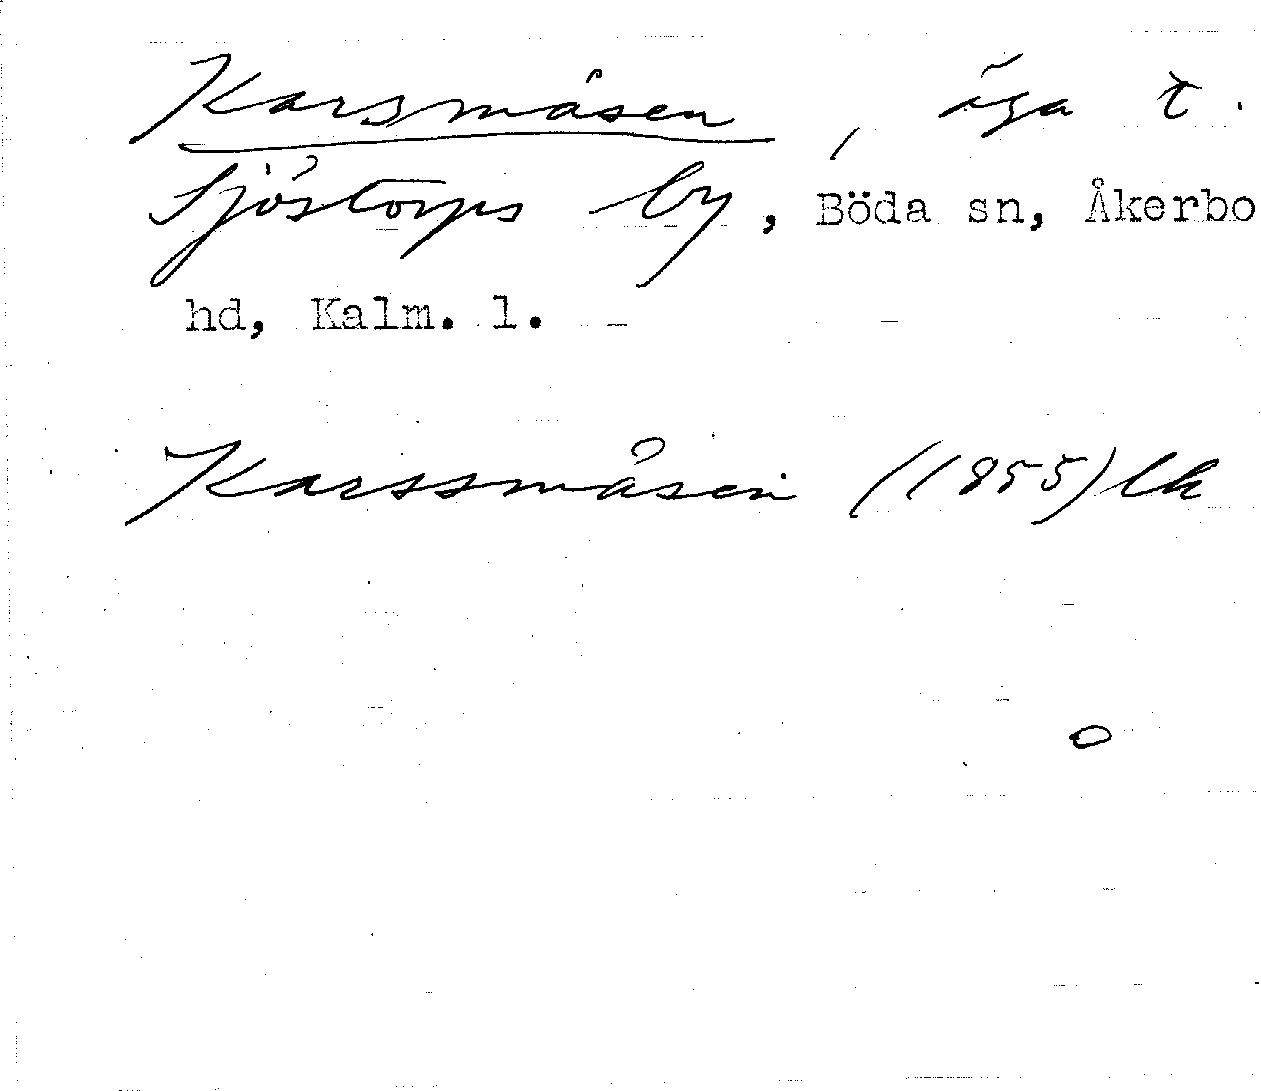 Karsmåsen, äga t.
Sjöstorps by, Böda sn, Åkerbo
hd, Kalm. l.
Karssmåsen (1855) lk